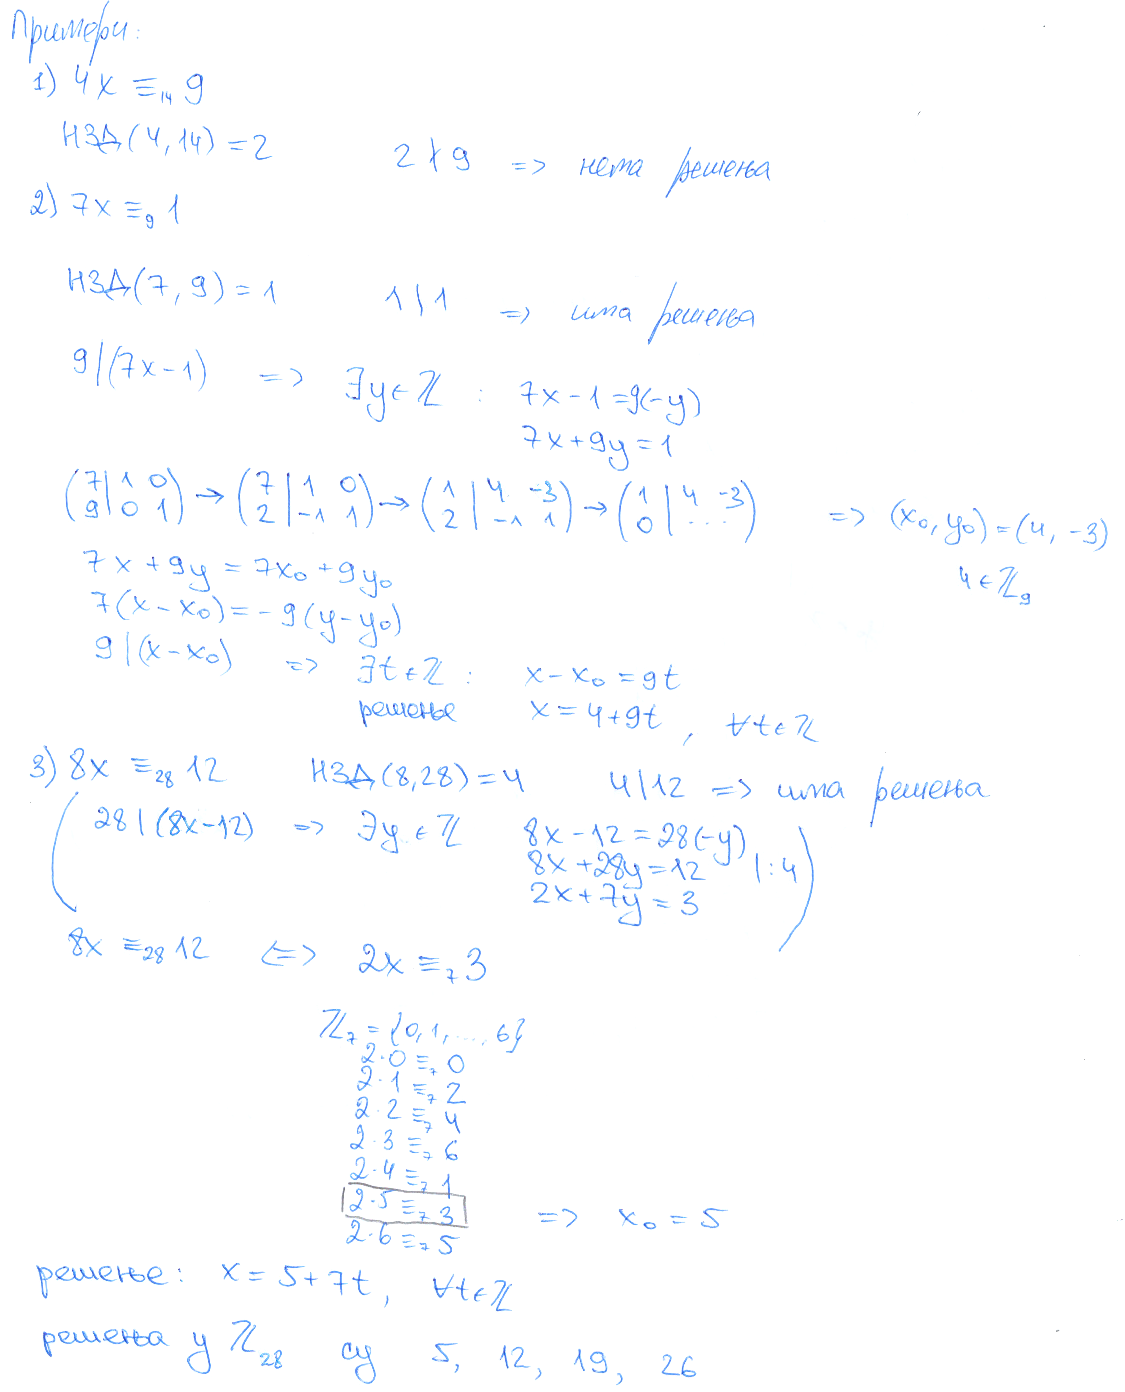 Примери:
1) 4x ≡₁₄ 9
НЗД(4,14) = 2   2 ∤ 9 => нема решења
2) 7x ≡₉ 1
НЗД(7,9) = 1   1 | 1 => има решења
9 | (7x−1) => ∃y∈ℤ : 7x−1 = 9(−y)
7x+9y = 1
(7 | 1 0; 9 | 0 1) → (7 | 1 0; 2 | −1 1) → (1 | 4 −3; 2 | −1 1) → (1 | 4 −3; 0 | ...) => (x₀, y₀) = (4, −3)
4 ∈ ℤ₉
7x + 9y = 7x₀ + 9y₀
7(x−x₀) = −9(y−y₀)
9 | (x−x₀) => ∃t∈ℤ : x−x₀ = 9t
решење x = 4+9t, ∀t∈ℤ
3) 8x ≡₂₈ 12   НЗД(8,28) = 4   4 | 12 => има решења
28 | (8x−12) => ∃y∈ℤ 8x−12 = 28(−y)
8x+28y = 12 | :4
2x+7y = 3
8x ≡₂₈ 12 <=> 2x ≡₇ 3
ℤ₇ = {0,1,...,6}
2·0 ≡₇ 0
2·1 ≡₇ 2
2·2 ≡₇ 4
2·3 ≡₇ 6
2·4 ≡₇ 1
2·5 ≡₇ 3 => x₀ = 5
2·6 ≡₇ 5
решење: x = 5+7t, ∀t∈ℤ
решења у ℤ₂₈ су 5, 12, 19, 26